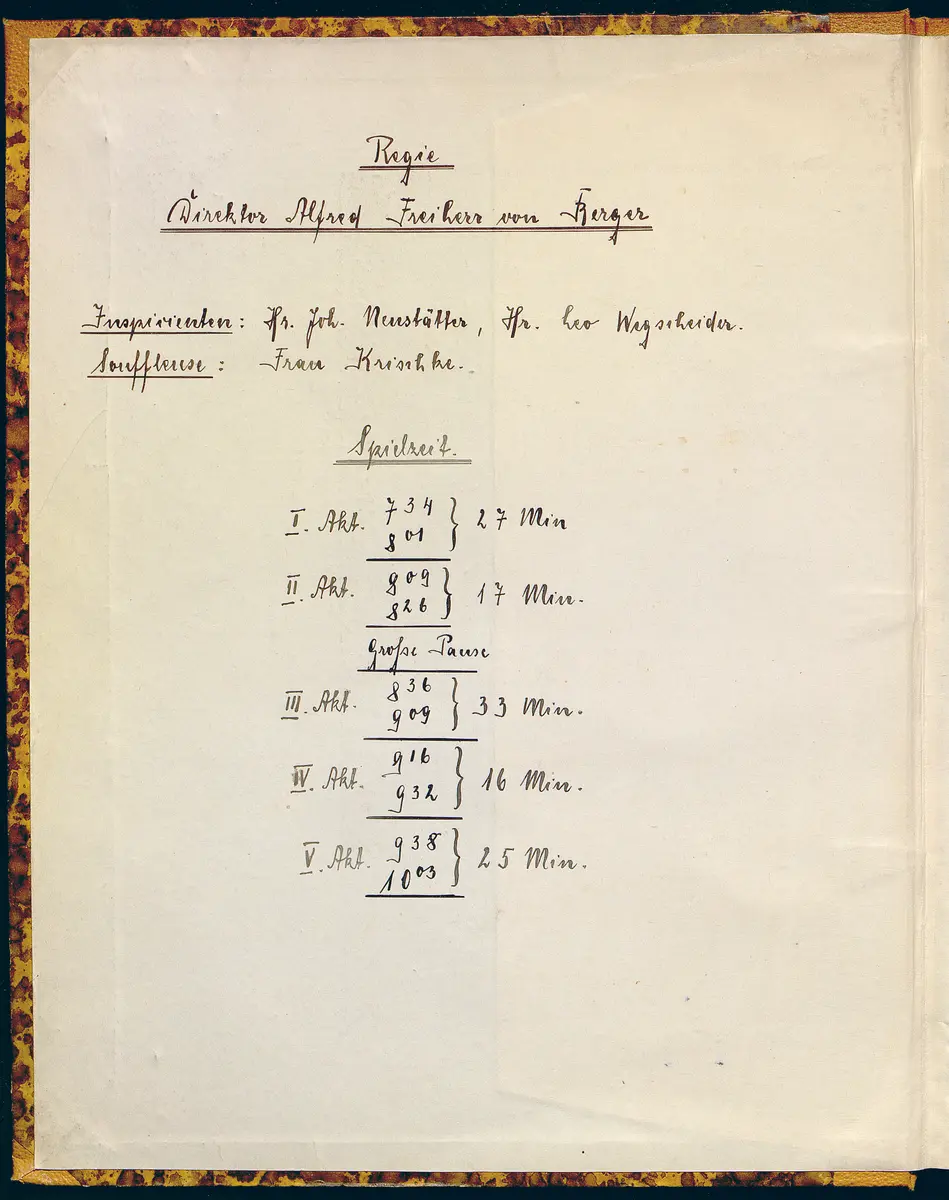 Regie
Direktor Alfred Freiherr von Berger
Inspizienten: Hr. Joh. Neustätter, Hr. Leo Wegscheider.
Souffleuse: Frau Krischke.
Spielzeit.
I. Akt. 7 34 } 27 Min
8 01
II. Akt. 8 09 } 17 Min.
8 26
Große Pause
III. Akt. 8 36 } 33 Min.
9 09
IV. Akt. 9 16 } 16 Min.
9 32
V. Akt. 9 38 } 25 Min.
10 03